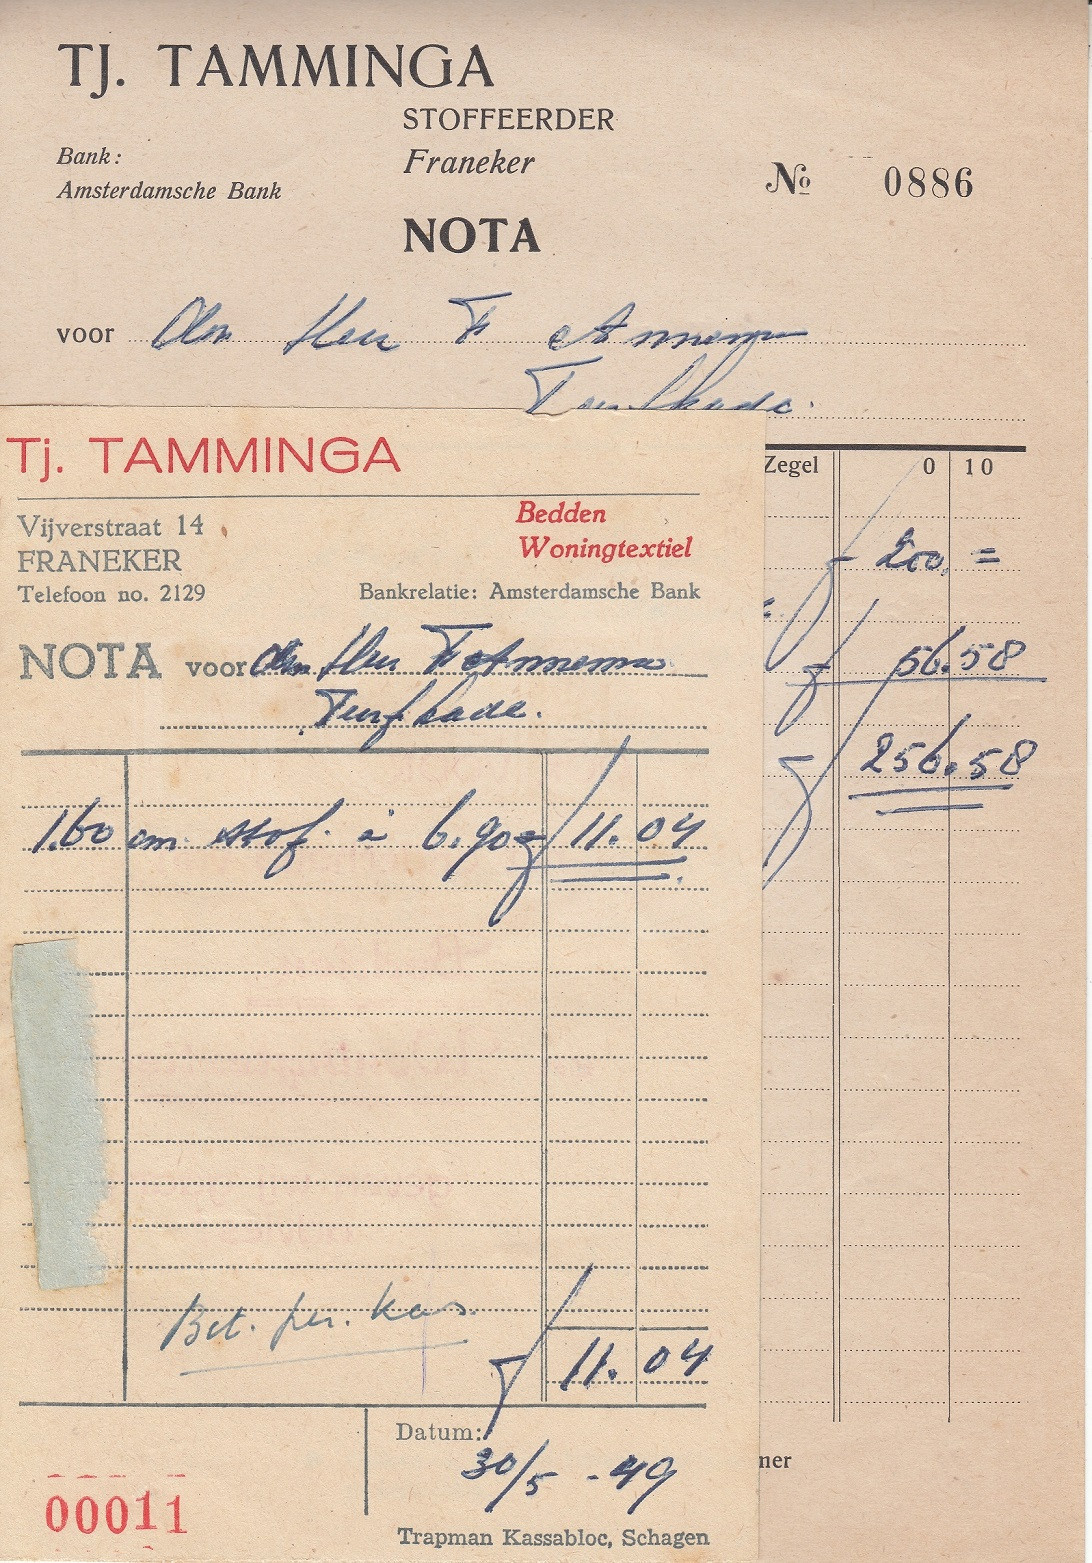 TJ. TAMMINGA
STOFFEERDER
Bank:
Franeker
Amsterdamsche Bank
No 0886
NOTA
voor Den Heer F Annema
Turfkade.
Zegel 0 10
f 200. =
f 56.58
f 256.58
ner
Tj. TAMMINGA
Vijverstraat 14
Bedden
FRANEKER
Woningtextiel
Telefoon no. 2129
Bankrelatie: Amsterdamsche Bank
NOTA voor Den Heer F Annema
Turfkade.
1.60 cm stof à 6.90 f 11.04
Bet. per. kas.
f 11.04
Datum:
30/5 - 49
00011
Trapman Kassabloc, Schagen